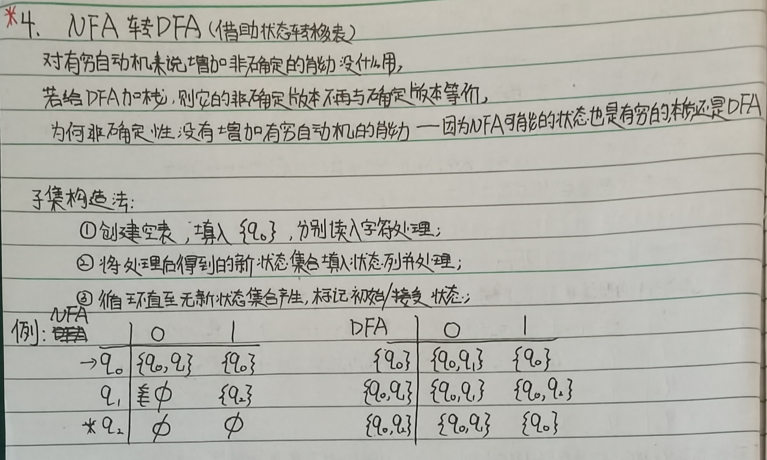 *4. NFA 转DFA(借助状态转移表)
对有穷自动机来说增加非确定的能力没什么用,
若给DFA加栈,则它的非确定版本不再与确定版本等价,
为何非确定性没有增加有穷自动机的能力——因为NFA可能的状态也是有穷的,本质还是DFA
子集构造法:
①创建空表,填入{q₀},分别读入字符处理;
②将处理后得到的新状态集合填入状态列并处理;
③循环直至无新状态集合产生,标记初始/接受状态;
例: NFA 0 1 DFA 0 1
→q₀ {q₀,q₁} {q₀} {q₀} {q₀,q₁} {q₀}
q₁ ϕ {q₂} {q₀,q₁} {q₀,q₁} {q₀,q₂}
*q₂ ϕ ϕ {q₀,q₂} {q₀,q₁} {q₀}